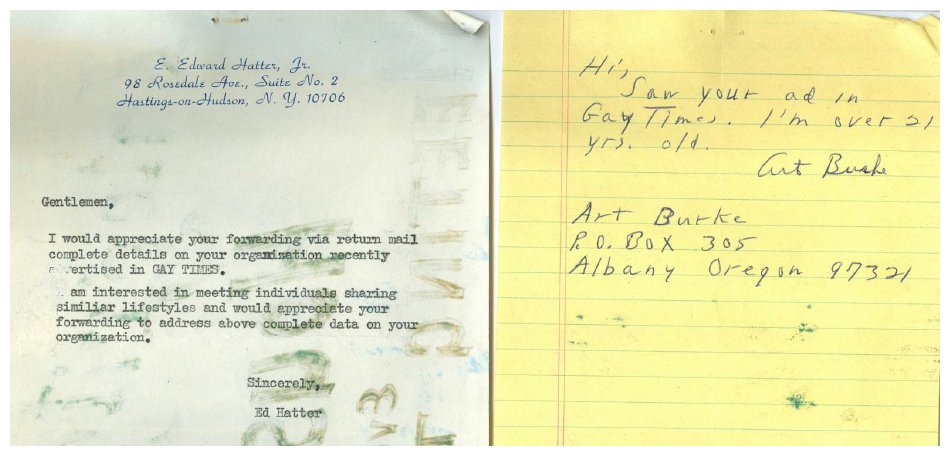 E. Edward Hatter, Jr.
98 Rosedale Ave., Suite No. 2
Hastings-on-Hudson, N. Y. 10706
Gentlemen,
I would appreciate your forwarding via return mail
complete details on your organization recently
vertised in GAY TIMES.
am interested in meeting individuals sharing
similiar lifestyles and would appreciate your
forwarding to address above complete data on your
organization.
Sincerely,
Ed Hatter
Hi,
Saw your ad in
Gay Times. I'm over 21
yrs. old.
Art Burke
Art Burke
P.O. Box 305
Albany Oregon 97321